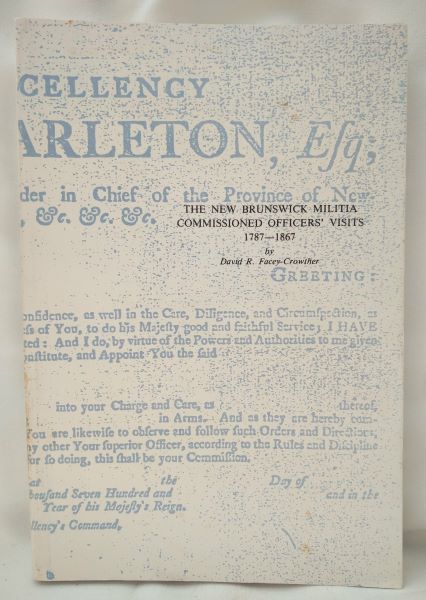 CELLENCY
ARLETON, Eſq;
der in Chief of the Province of New-
, &c. &c. &c.
THE NEW BRUNSWICK MILITIA
COMMISSIONED OFFICERS' VISITS
1787—1867
by
David R. Facey-Crowther
GREETING:
onfidence, as well in the Care, Diligence, and Circumſpection, as
ſs of You, to do his Majeſty good and faithful Service; I HAVE
ted: And I do, by virtue of the Powers and Authorities to me given
onſtitute, and Appoint You the ſaid
into your Charge and Care, as thereof,
in Arms. And as they are hereby com-
You are likewiſe to obſerve and follow ſuch Orders and Directions,
ny other Your ſuperior Officer, according to the Rules and Diſcipline
for ſo doing, this ſhall be your Commiſſion.
at the Day of
houſand Seven Hundred and and in the
Year of his Majeſty's Reign.
llency's Command,